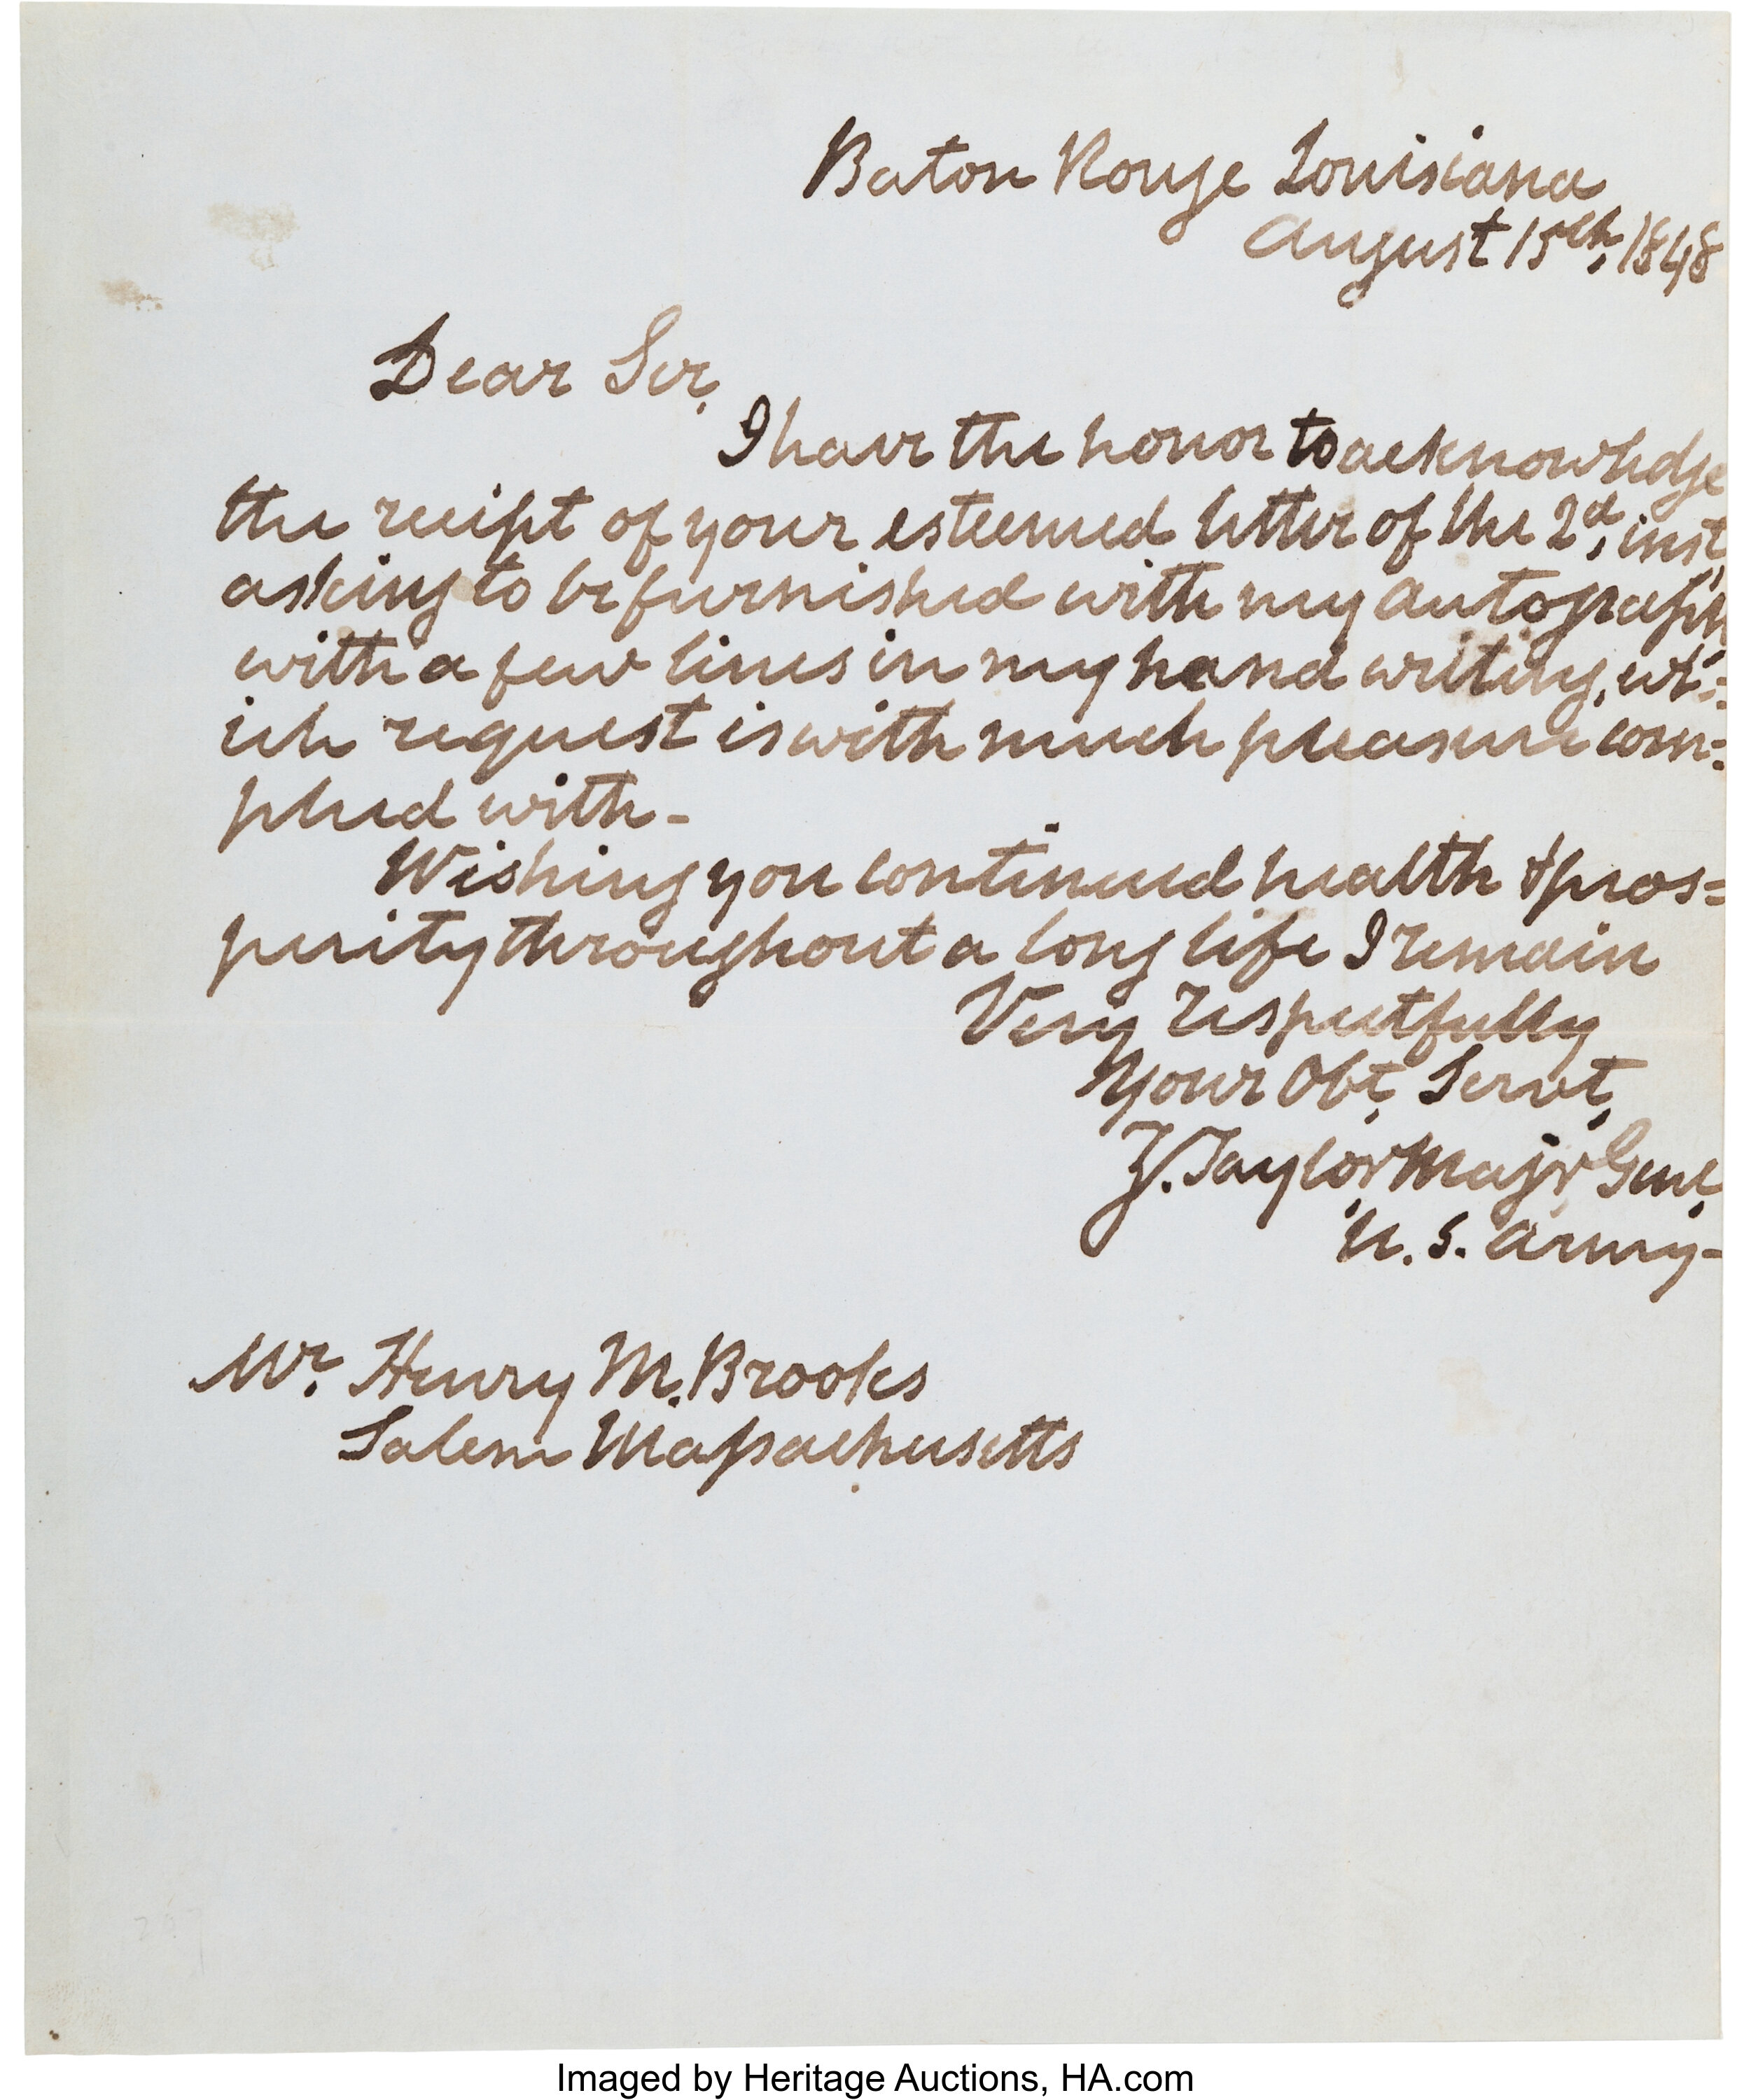 Baton Rouge Louisiana
August 15th, 1848
Dear Sir,
I have the honor to acknowledge
the receipt of your esteemed letter of the 2d, inst,
asking to be furnished with my autograph
with a few lines in my hand writing, wh=
ich request is with much pleasure com=
plied with-
Wishing you continued health & pros=
perity throughout a long life I remain
Very respectfully
Your Obt, Servt,
Z. Taylor, Majr, Genl,
U. S. Army-
Mr. Henry M. Brooks
Salem Massachusetts
Imaged by Heritage Auctions, HA.com